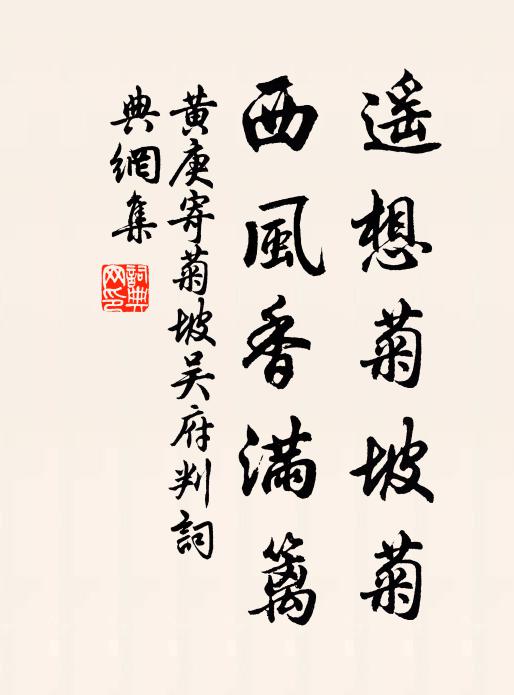 遥想菊坡菊
西風香滿籬
黃庚寄菊坡吴府判詞
典網集
詞典網印